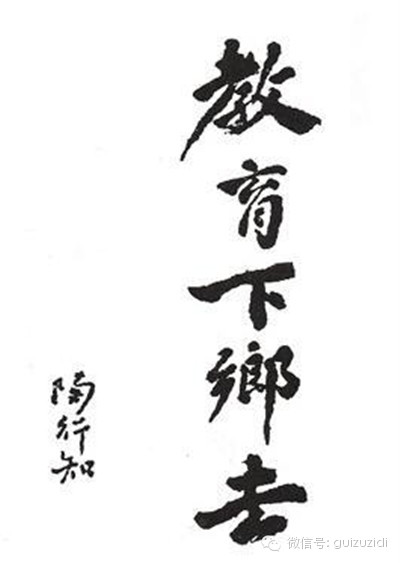 教育下鄉去
陶行知
微信号: guizuzidi